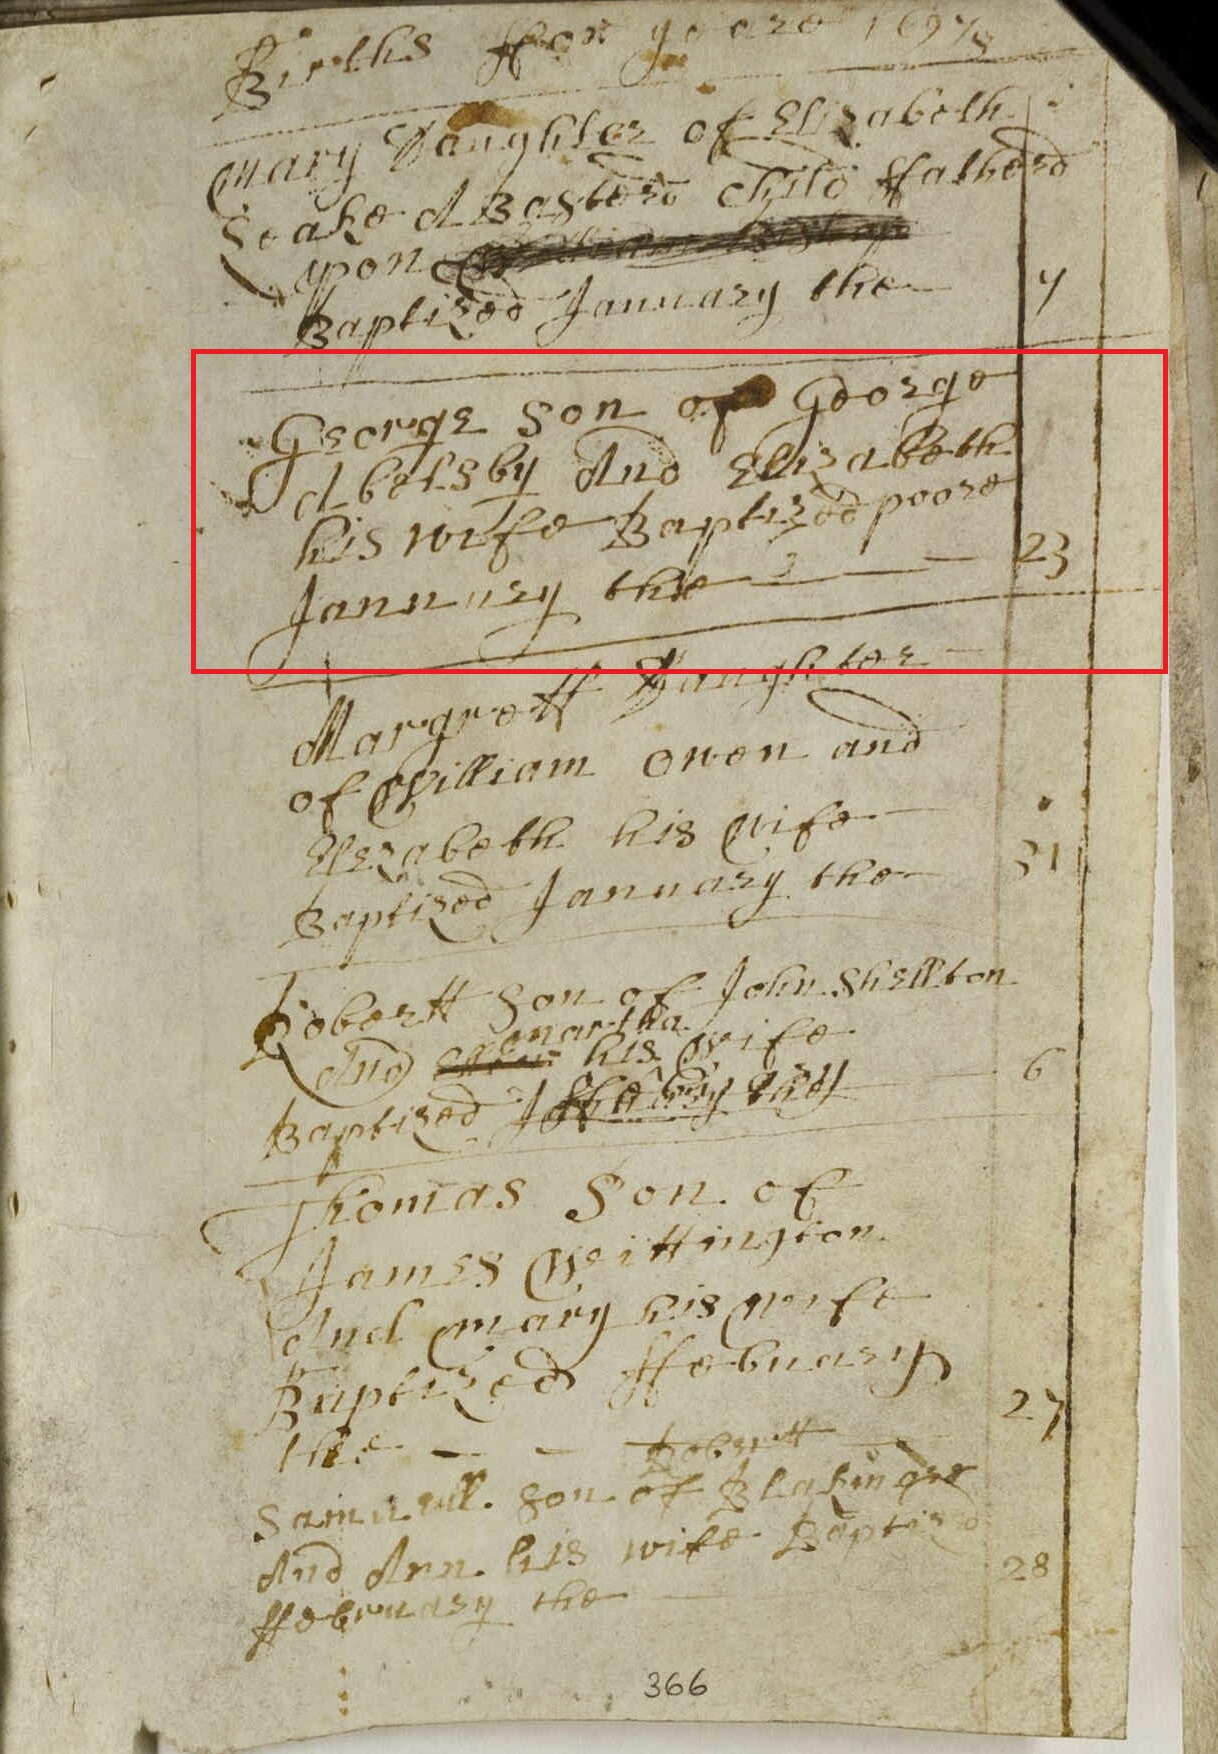 Births ffor yeare 1697/8
Mary Daughter of Elizabeth
Leake A Basterd Child ffatherd
upon
Baptized January the 7
George Son of George
Abelsby And Elizabeth
his wife Baptized poore
January the 23
Margrett Daughter
of William Owen and
Elezabeth his Wife
Baptized January the 31
Robertt Son of John Shellton
martha
And his Wife
Baptized 6
Thomas Son of
James Wittington
And Mary his wife
Baptized ffebuary
the 27
Robertt
Samuell Son of Blakemore
And Ann his wife Baptizd
ffebruary the 28
366